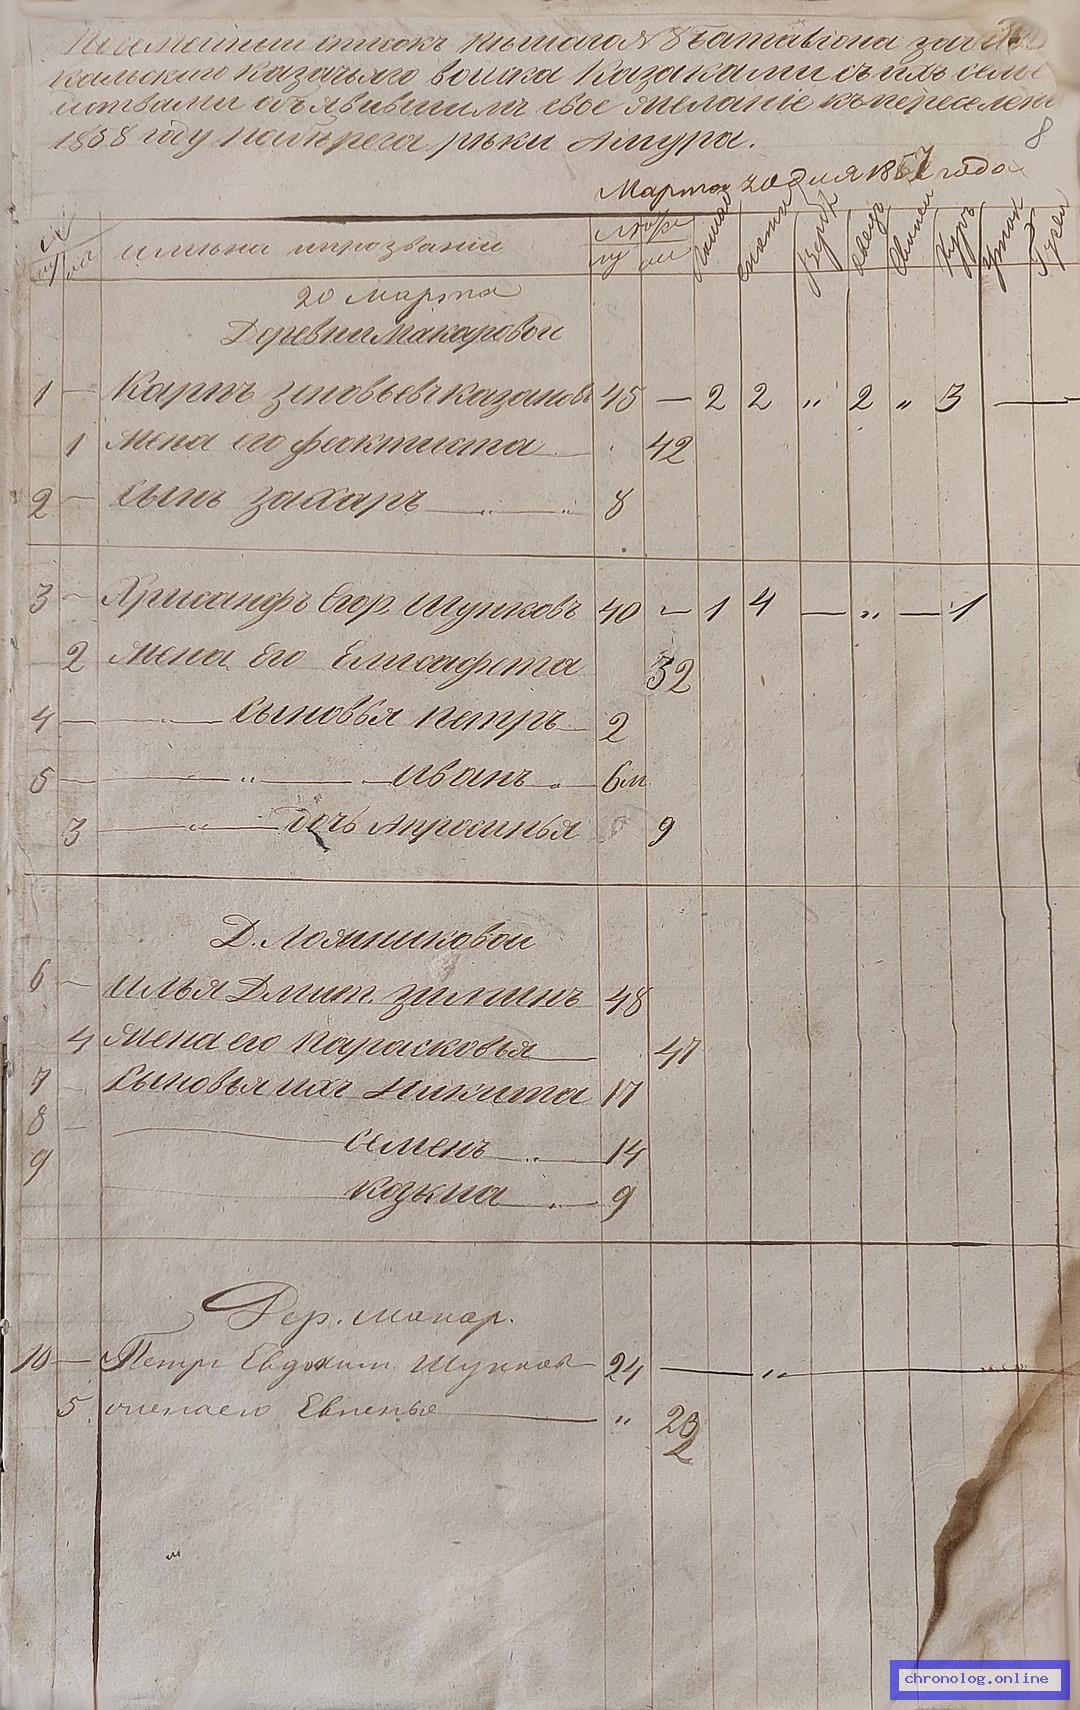 Поименный списокъ Пешаго № 8 Баталіона Забай
кальскаго Казачьяго войска Казаками съ ихъ семе
йствами объявившимъ свое желаніе къ переселен
1858 году на берега рѣки Амура.
8
Марта 20 дня 1857 года
№
имѣна и прозваніи
му
20 Марта
Деревни Макаровой
1 — Карпъ Зиновьевъ Казановъ 45 — 2 2 „ 2 „ 3 —
1 Жена его Фектиста 42
2 — Сынъ Захаръ 8
3 — Хрисанфъ Егор. Шунковъ 40 — 1 4 — „ — 1
2 Жена Его Елисафета 32
4 Сыновья Петръ 2
5 „ Иванъ 6 м
3 „ дочь Апросинья 9
Д. Ложниковой
6 — Илья Дмит. Зиминъ 48
4 Жена его Парасковья 47
7 Сыновья ихъ Никита 17
8 — Семенъ „ 14
9 Козьма 9
Дер. Макар.
10 — Петръ Евдоким. Шунков 24 — „ —
5 жена его Евгенья „ 23
2
chronolog.online